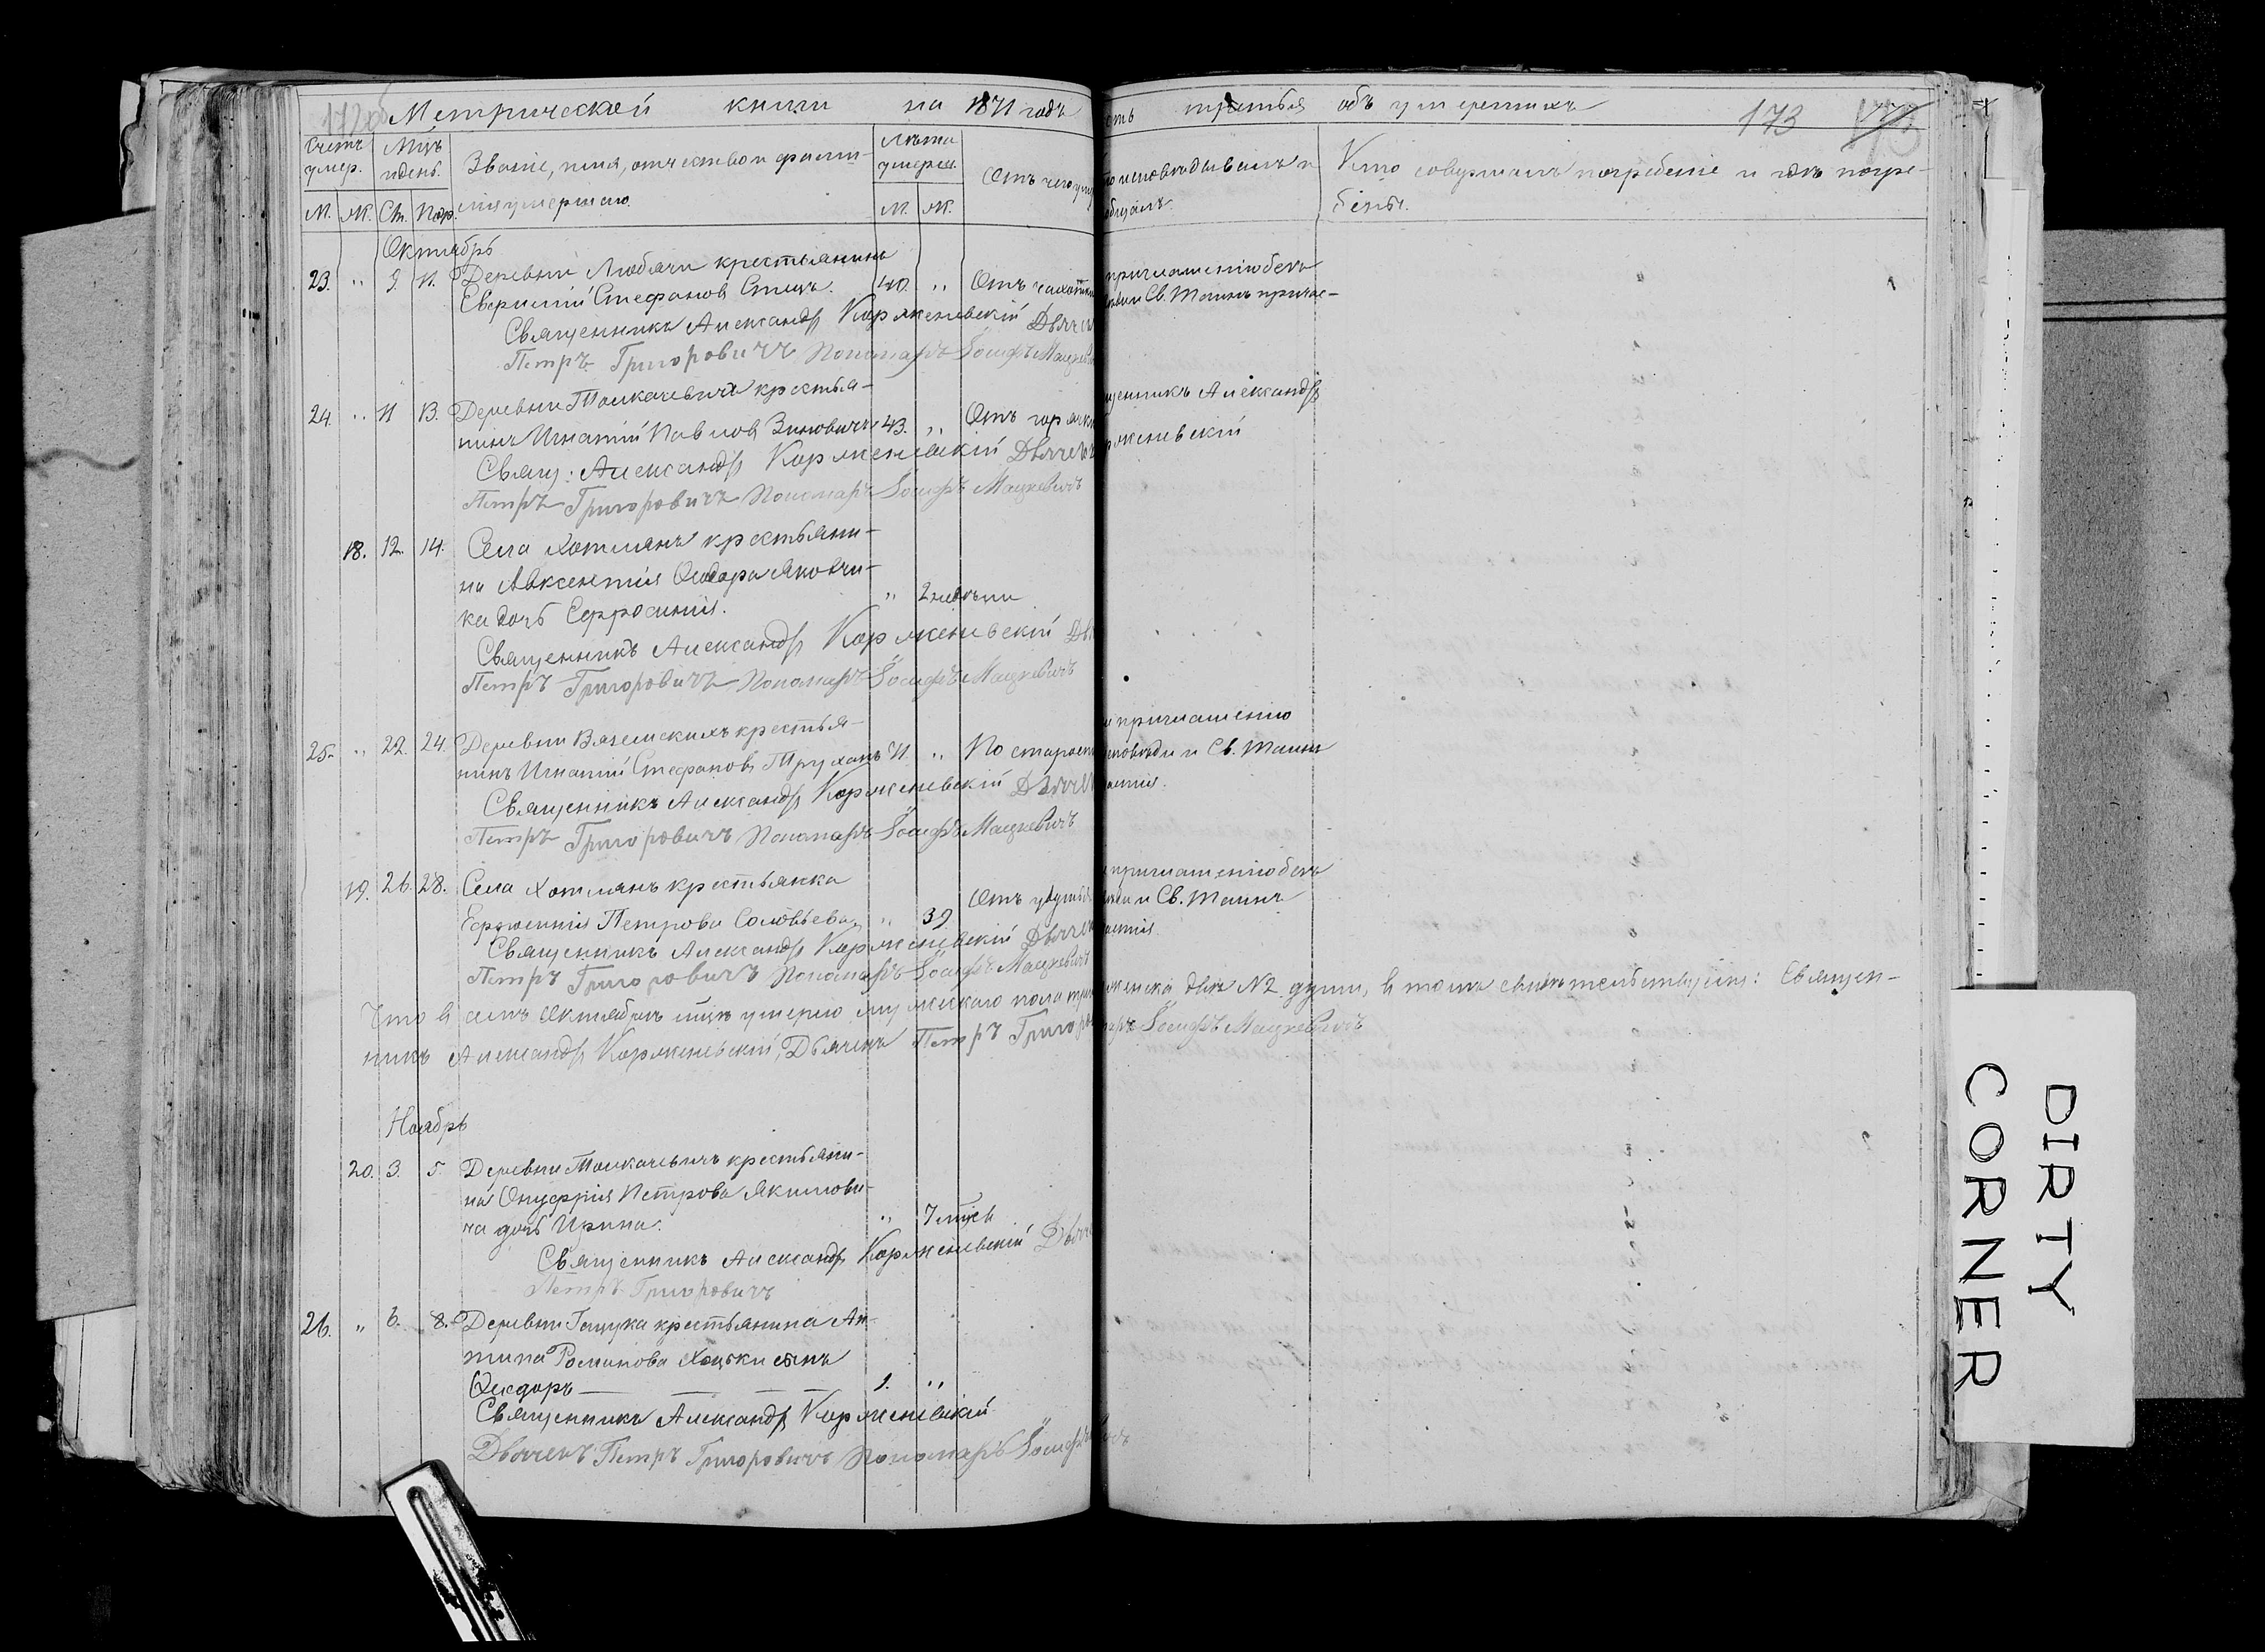 Метрической книги на 1871 годъ
сть третья объ умершихъ
173
Счетъ умер.
Мцъ и день.
Званіе, имя, отчество и фами-
лія умершаго.
Лѣта умерш.
Отъ чего
исповѣдывалъ и
Кто совершалъ погребеніе и гдѣ погре-
бены.
М. Ж. См. Погр. М. Ж.
Октябрь
23. " 9. 11. Деревни Любячи крестьянинъ
Стефановъ 40. " Отъ чахотки
Священникъ Александръ Корженевскій Дьячек
Петръ Григоровичъ Пономарь Іосифъ Мацкевич
приглашенію безъ
Св. Таинъ причас-
24. " 11 13. Деревни Толкачевичъ крестья-
нинъ Игнатій Павловъ Зиновичъ 43. " Отъ горячк
Свящ: Александръ Корженевскій Дьячекъ
Петръ Григоровичъ Пономарь Іосифъ Мацкевичъ
щенникъ Александръ
рженевскій
18. 12. 14. Села Хотлянъ крестьяни-
на Авксентія Ѳедора Яковчи-
ка дочь Ефросинія. " 2 недѣли
Священникъ Александръ Корженевскій Дья
Петръ Григоровичъ Пономарь Іосифъ Мацкевичъ
25. " 22. 24. Деревни крестья-
нинъ Игнатій Стефановъ Труханъ " По старост
Священникъ Александръ Корженевскій Дьячек
Петръ Григоровичъ Пономарь Іосифъ Мацкевичъ
приглашенію
исповѣди и Св. Таинъ
19. 26. 28. Села Хотлянъ крестьянка
Петрова Соловьева " 39 Отъ
Священникъ Александръ Корженевскій Дьячек
Петръ Григоровичъ Пономарь Іосифъ Мацкевичъ
приглашенію безъ
и Св. Таинъ
Что въ семъ Октябрѣ мцѣ умерло мужескаго пола три женска двѣ №2 души, в томъ свидѣтельствуемъ: Священ-
никъ Александръ Корженевскій, Дьячекъ Петръ Григоро Іосифъ Мацкевичъ
Ноябрь
20. 3. 5. Деревни Толкачевичъ крестьяни-
на Онуфрія Петрова Якимови-
ча дочь Ирина. " 7 мцев
Священникъ Александръ Корженевскій Дьяче
Петръ Григоровичъ
26. " 6. 8. Деревни крестьянина Ан-
типа Романова сынъ
Ѳеодоръ 1. "
Священникъ Александръ Корженевскій
Дьячекъ Петръ Григоровичъ Пономарь Іосифъ
DIRTY
CORNER